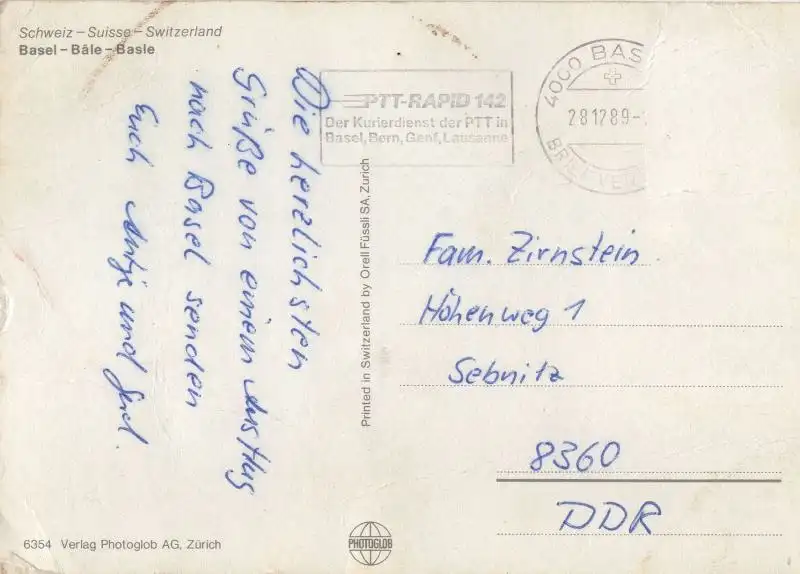 Schweiz – Suisse – Switzerland
Basel – Bâle – Basle
Die herzlichsten
Grüße von einem Ausflug
nach Basel senden
Euch Antje und
PTT-RAPID 142
Der Kurierdienst der PTT in
Basel, Bern, Genf, Lausanne
4000 BAS
28 12 89 –
BRIEFVER
Printed in Switzerland by Orell Füssli SA, Zurich
Fam. Zirnstein
Höhenweg 1
Sebnitz
8360
DDR
6354 Verlag Photoglob AG, Zürich
PHOTOGLOB